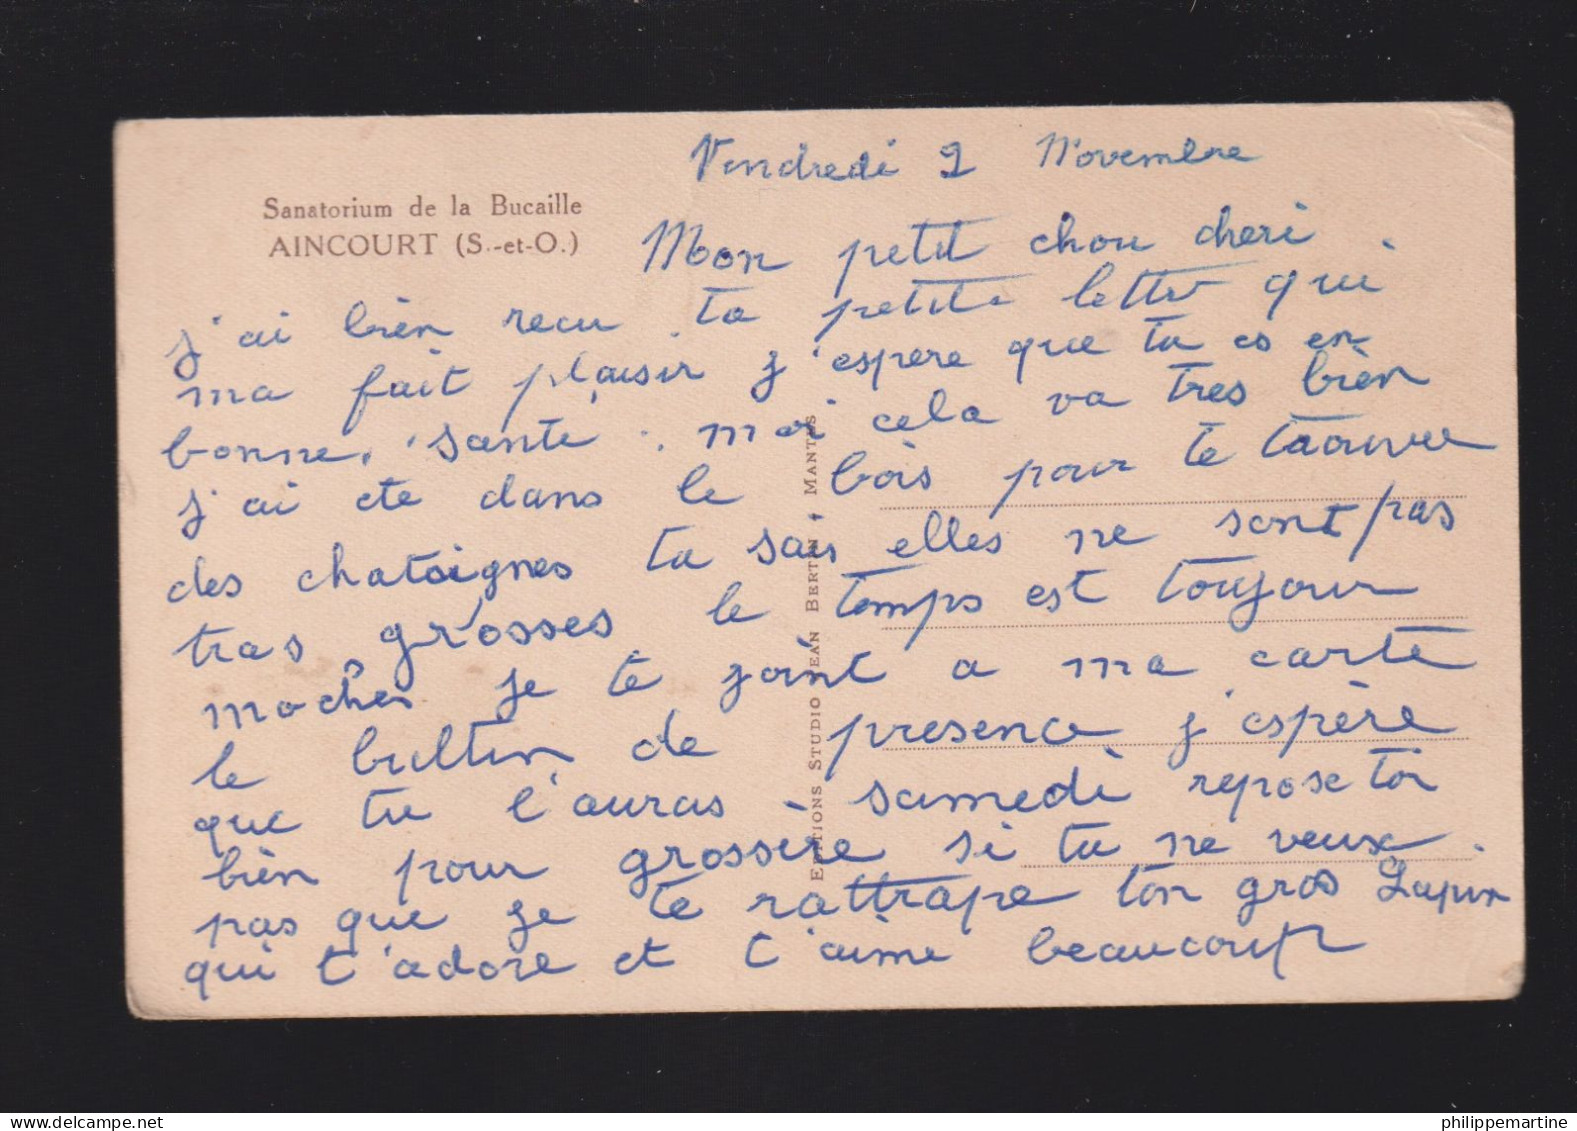 Vendredi 2 Novembre
Sanatorium de la Bucaille
AINCOURT (S.-et-O.)
Mon petit chou cheri.
j'ai bièn recu ta petite lettre qui
ma fait plaisir j'espere que tu es en
bonne, santé. moi cela va tres bièn
j'ai ete dans le bois pour te trouver
des chataignes tu sais elles ne sont pas
tras grosses le temps est toujour
moches je te joint a ma carte
le bultin de presence j'espère
que tu l'auras - samedi repose toi
bièn pour grossère si tu ne veux.
pas que je te rattrape ton gros Lapin
qui t'adore et t'aime beaucoup
EDITIONS STUDIO JEAN BERTIN - MANTES
www.delcampe.net
philippemartine